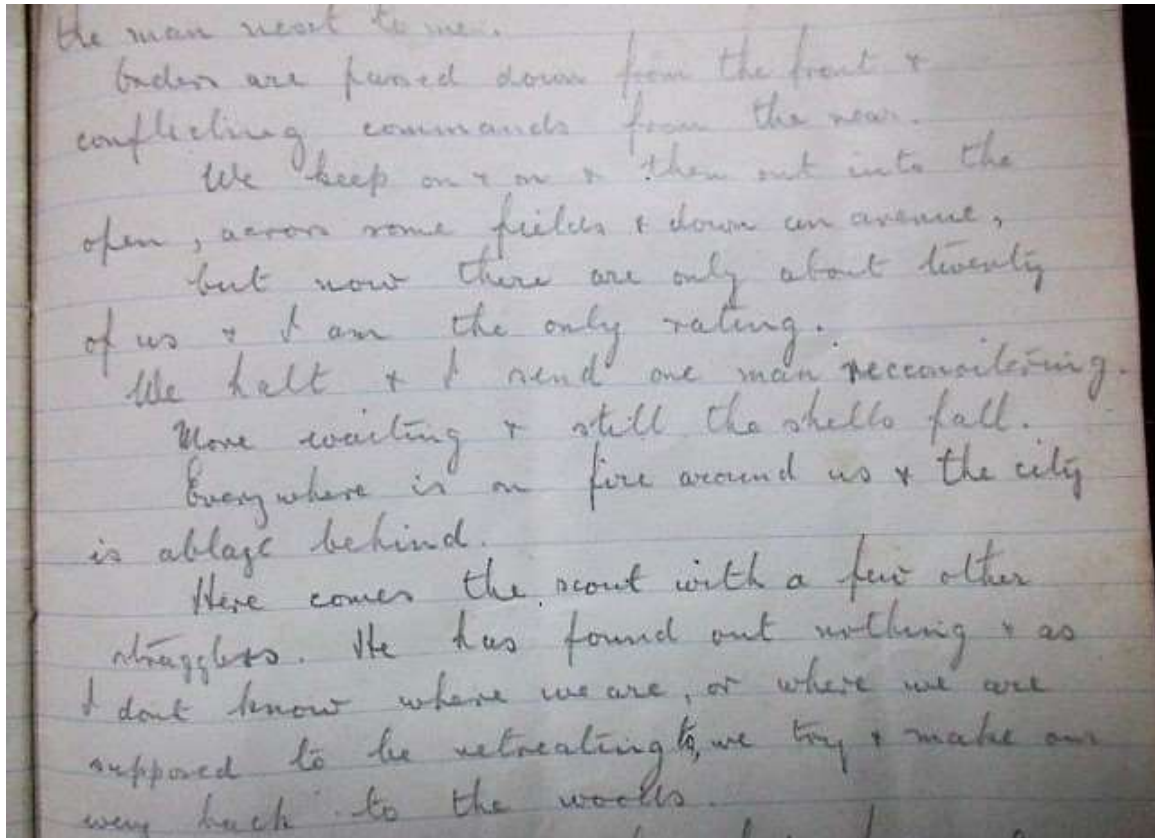 the man next to me.
Orders are passed down from the front &
conflicting commands from the rear.
We keep on & on & then out into the
open, across some fields & down an avenue,
but now there are only about twenty
of us & I am the only rating.
We halt & I send one man recconoitering.
More waiting & still the shells fall.
Everywhere is on fire around us & the city
is ablaze behind.
Here comes the scout with a few other
stragglers. He has found out nothing & as
I dont know where we are, or where we are
supposed to be retreating to, we try & make our
way back to the woods.